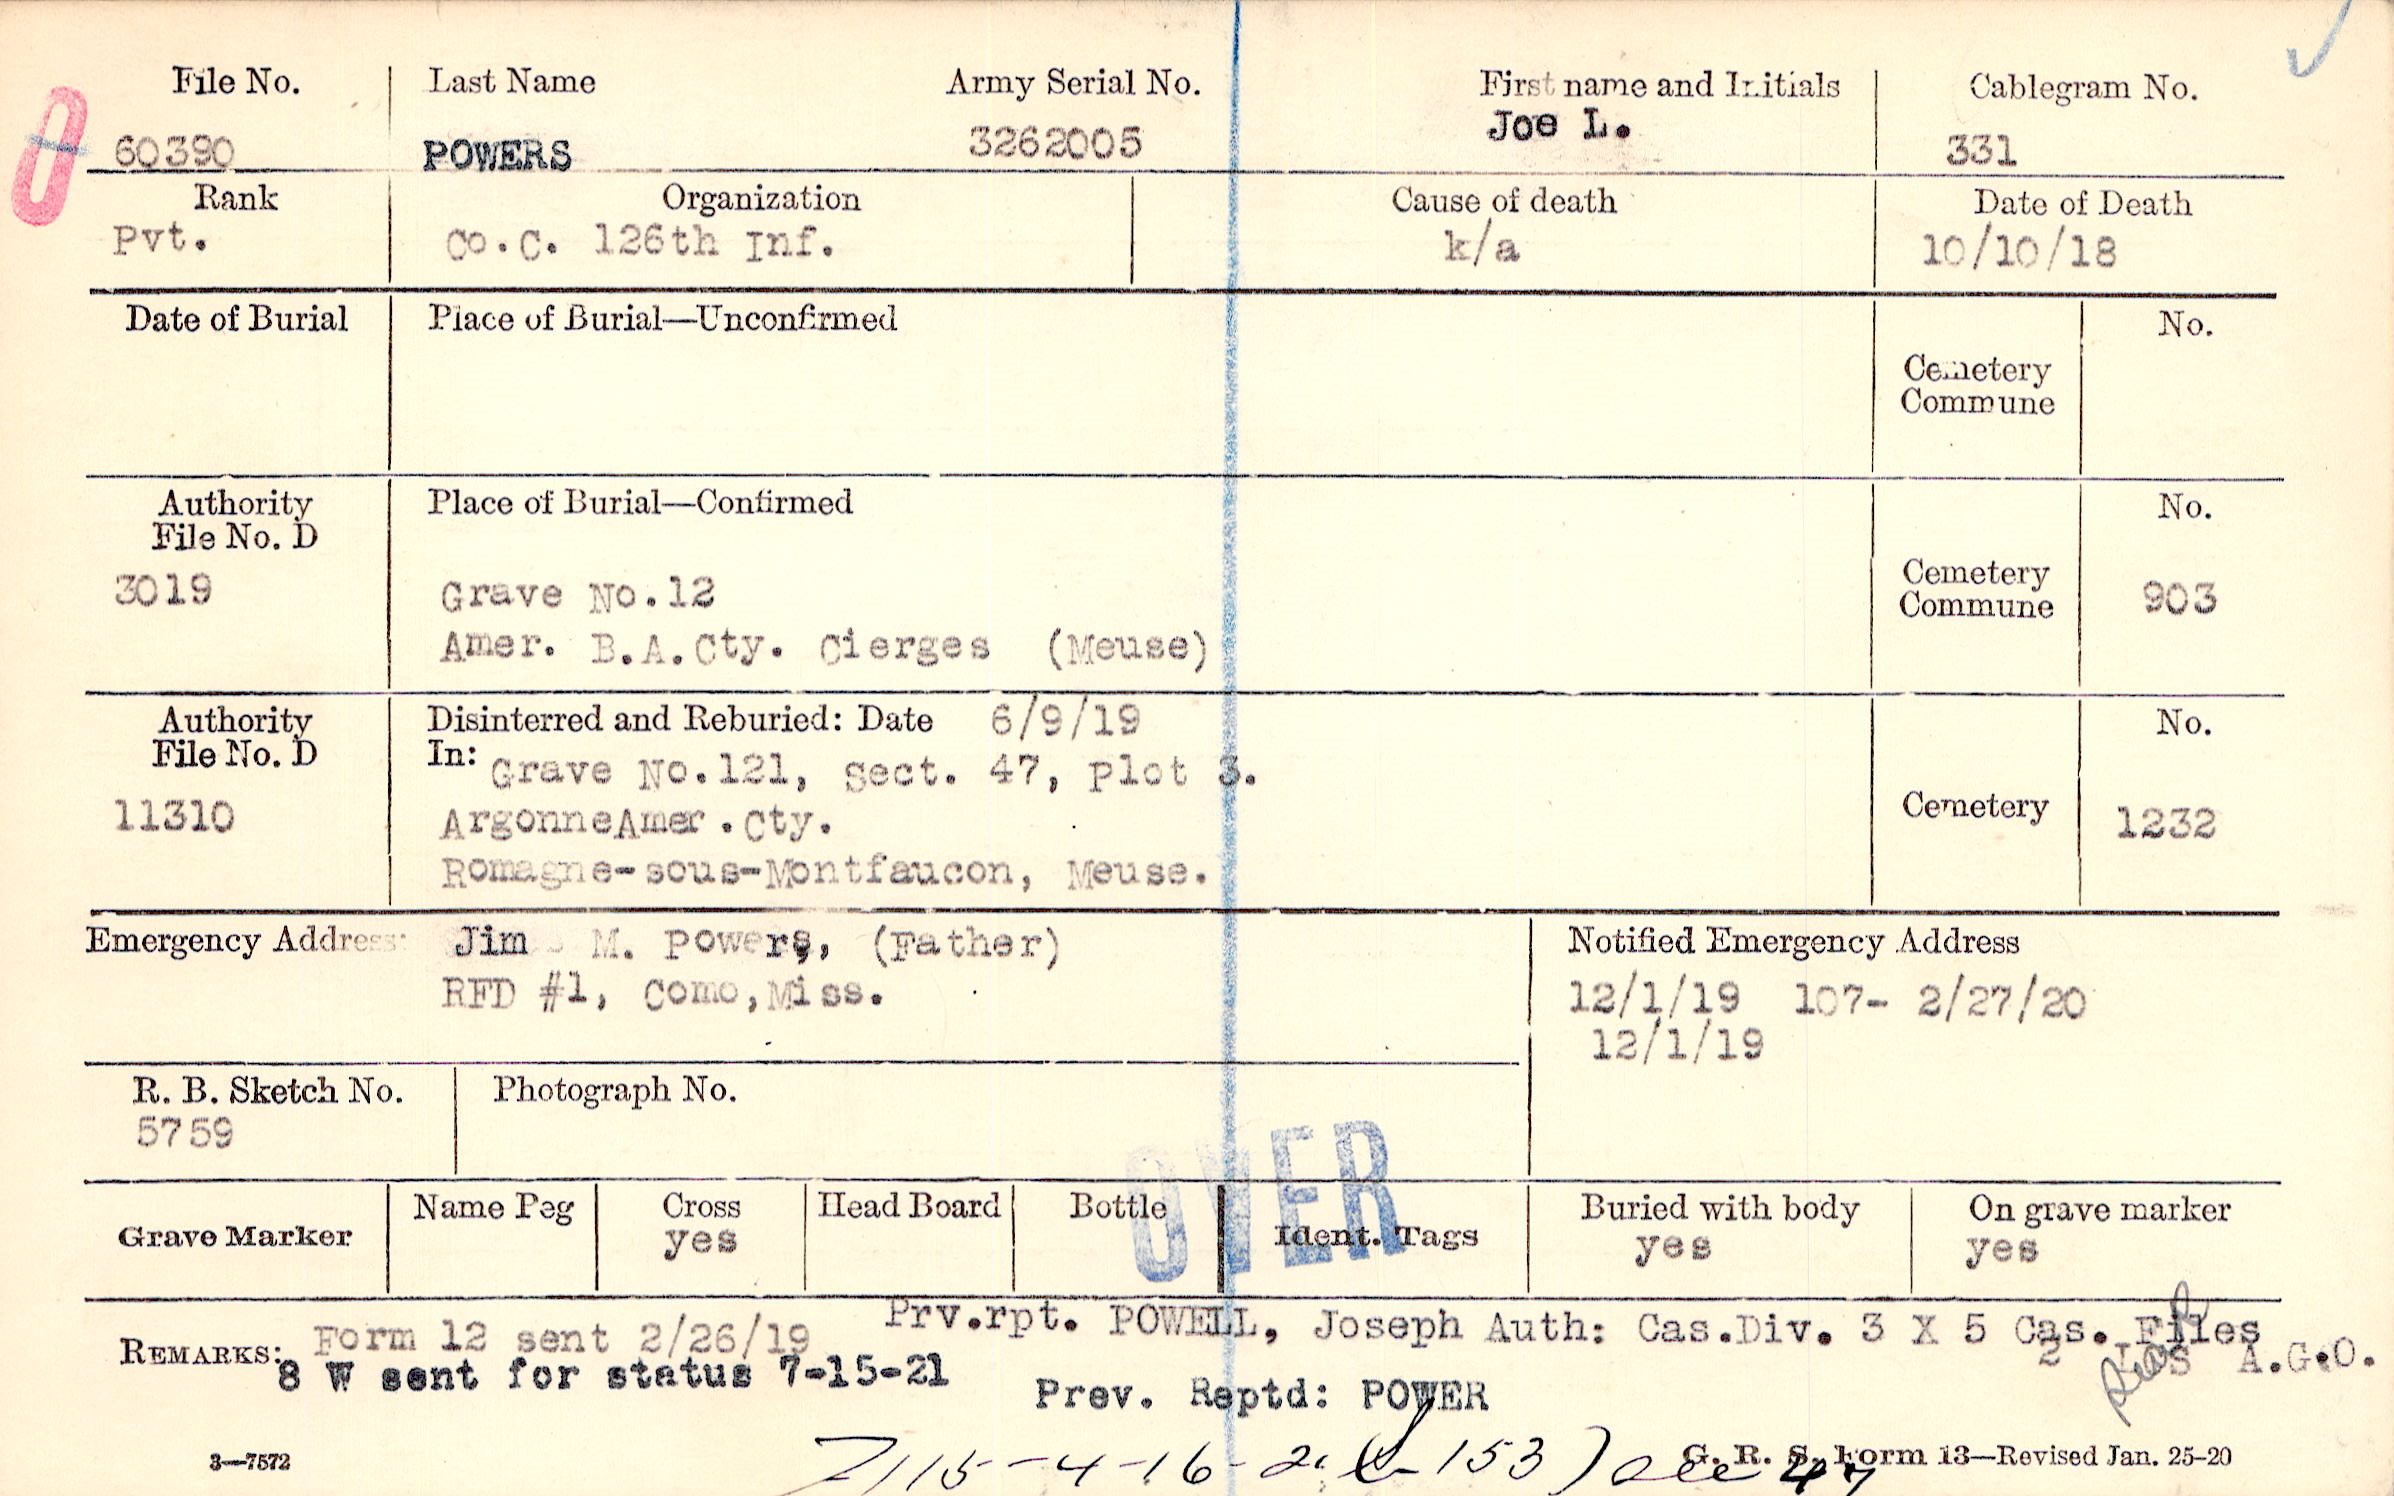 File No. Last Name Army Serial No. First name and Initials Cablegram No.
60390 POWERS 3262005 Joe L. 331
Rank Organization Cause of death Date of Death
Pvt. Co.C. 126th Inf. k/a 10/10/18
Date of Burial Place of Burial—Unconfirmed No.
Cemetery
Commune
Authority Place of Burial—Confirmed No.
File No. D
3019 Grave No.12 Cemetery
Commune 903
Amer. B.A.Cty. Cierges (Meuse)
Authority Disinterred and Reburied: Date 6/9/19 No.
File No. D In: Grave No.121, Sect. 47, Plot 3.
11310 ArgonneAmer.Cty. Cemetery 1232
Romagne-sous-Montfaucon, Meuse.
Emergency Address: Jim M. Powers, (Father) Notified Emergency Address
RFD #1, Como,Miss. 12/1/19 107- 2/27/20
12/1/19
R. B. Sketch No. Photograph No.
5759
OVER
Grave Marker Name Peg Cross Head Board Bottle Ident. Tags Buried with body On grave marker
yes yes yes
Prv.rpt. POWELL, Joseph Auth: Cas.Div. 3 X 5 Cas. Files
REMARKS: Form 12 sent 2/26/19 A.G.O.
8 W sent for status 7-15-21
Prev. Reptd: POWER
3—7572 G. R. S. Form 13—Revised Jan. 25-20